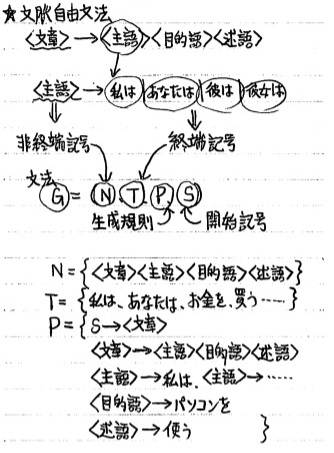 ★文脈自由文法
<文章>→<主語><目的語><述語>
<主語>→私は|あなたは|彼は|彼女は
非終端記号 終端記号
文法
G=(N.T.P.S)
生成規則 開始記号
N={<文章><主語><目的語><述語>}
T={私は、あなたは、お金を、買う……}
P={S→<文章>
<文章>→<主語><目的語><述語>
<主語>→私は、<主語>→……
<目的語>→パソコンを
<述語>→使う }